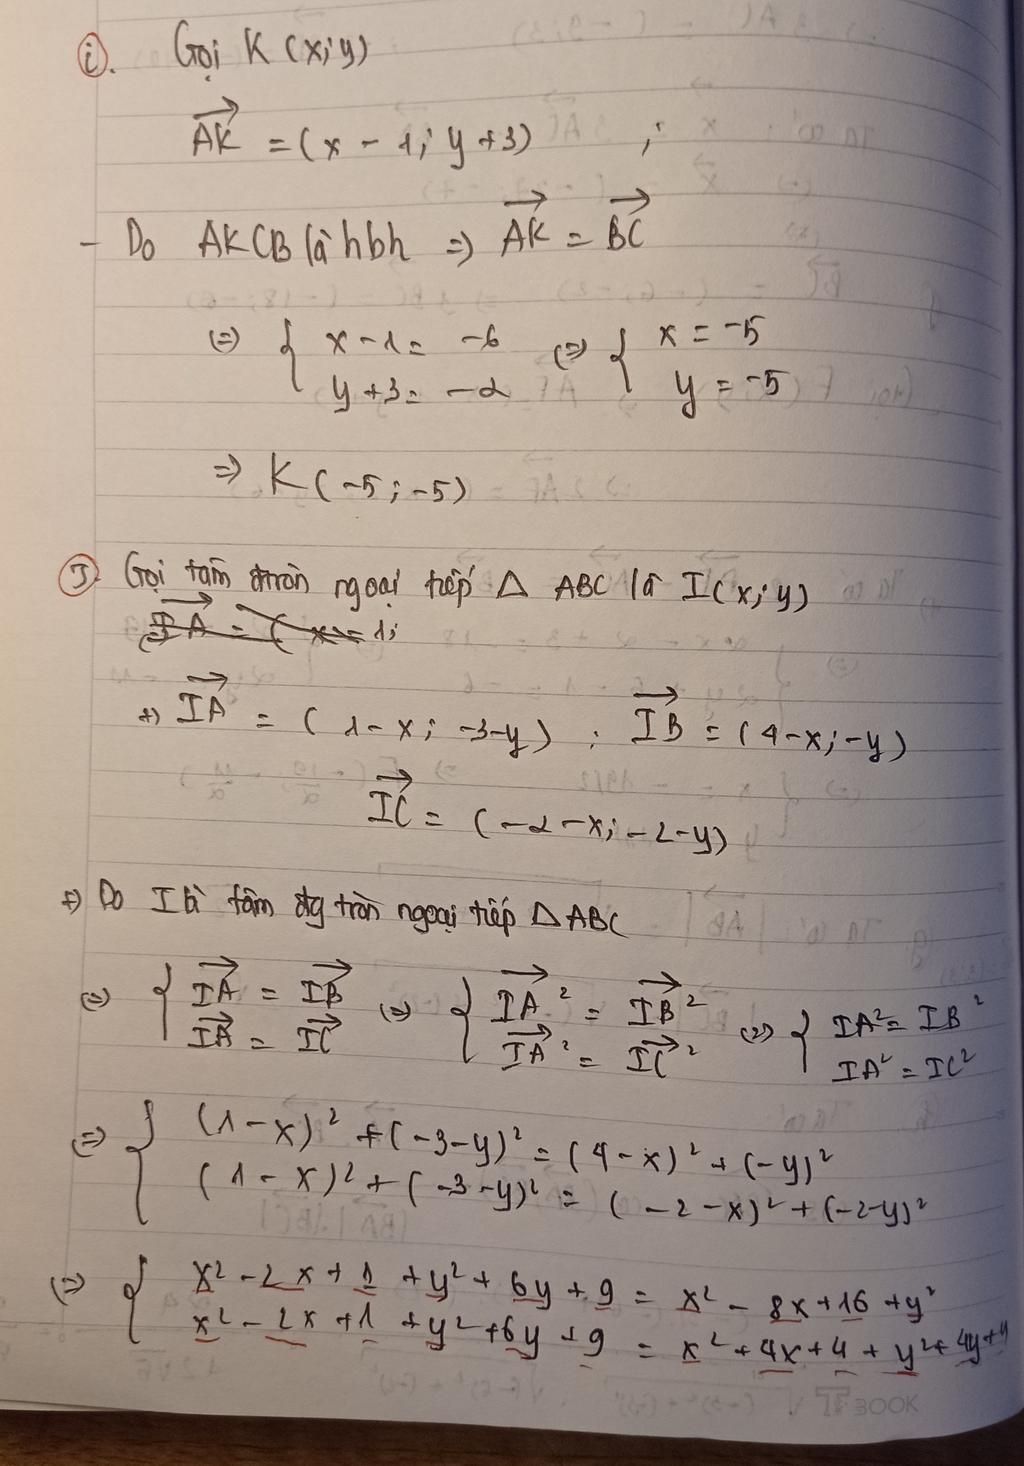 i. Gọi K (x; y)
AK = (x - 1; y + 3) ;
- Do AKCB là hbh => AK = BC
(=) { x - 1 = -6 (=) { x = -5
y + 3 = -2 y = -5
=> K (-5; -5)
J. Gọi tâm đtròn ngoại tiếp Δ ABC là I(x; y)
+) IA = (1 - x; -3 - y) ; IB = (4 - x; -y)
IC = (-2 - x; -2 - y)
+) Do I là tâm đg tròn ngoại tiếp Δ ABC
(=) { IA = IB (=) { IA² = IB² (=) { IA² = IB²
IA = IC IA² = IC² IA² = IC²
(=) { (1 - x)² + (-3 - y)² = (4 - x)² + (-y)²
(1 - x)² + (-3 - y)² = (-2 - x)² + (-2 - y)²
(=) { x² - 2x + 1 + y² + 6y + 9 = x² - 8x + 16 + y²
x² - 2x + 1 + y² + 6y + 9 = x² + 4x + 4 + y² + 4y + 4
BOOK